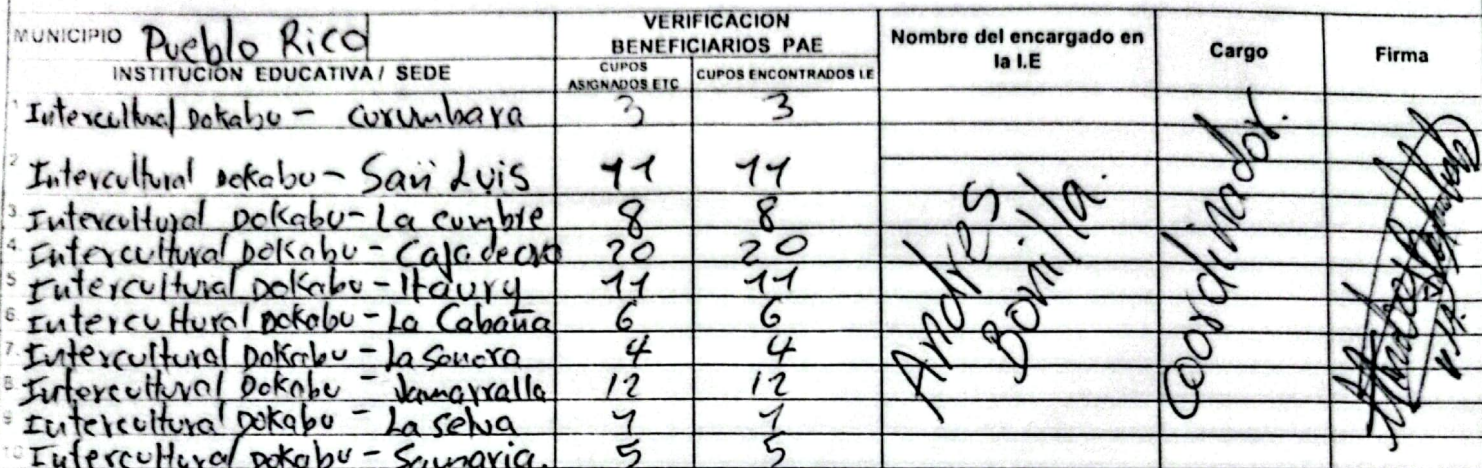 MUNICIPIO Pueblo Rico
INSTITUCIÓN EDUCATIVA / SEDE
VERIFICACION BENEFICIARIOS PAE
CUPOS ASIGNADOS ETC
CUPOS ENCONTRADOS I.E
Nombre del encargado en la I.E
Cargo
Firma
1 Intercultural Dokabu - Curumbara 3 3
2 Intercultural Dokabu - San Luis 11 11
3. Intercultural Dokabu - La cumbre 8 8
4. Intercultural Dokabu - Caja de oro 20 20
5 Intercultural Dokabu - Itaury 11 11
6. Intercultural Dokabu - La Cabaña 6 6
7. Intercultural Dokabu - La Sonora 4 4
8 Intercultural Dokabu - 12 12
9 Intercultural Dokabu - La selva 1 1
10 Intercultural Dokabu - Samaria. 5 5
Andres Bonilla.
Coordinador.